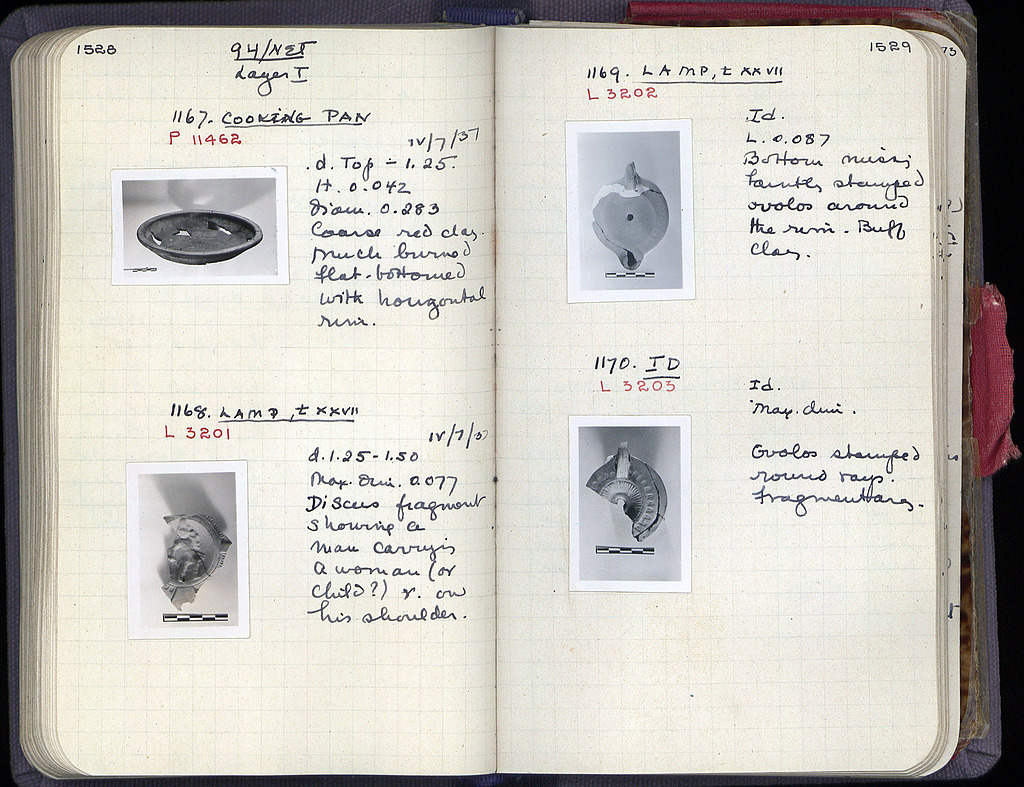 1528
94/NET
Layer I
1167. COOKING PAN
P 11462
IV/7/37
d. Top - 1.25.
H. 0.042
Diam. 0.283
Coarse red clay.
Much burned
flat-bottomed
with horizontal
rim.
1168. LAMP, t XXVII
L 3201
IV/7/37
d. 1.25-1.50
Max. dim. 0.077
Discus fragment
showing a
man carrying
a woman (or
child?) r. on
his shoulder.
1529
1169. LAMP, t XXVII
L 3202
Id.
L. 0.087
Bottom missing
faintly stamped
ovolos around
the rim. Buff
clay.
1170. ID
L 3203
Id.
Max. dim.
Ovolos stamped
round rays.
fragmentary.
73